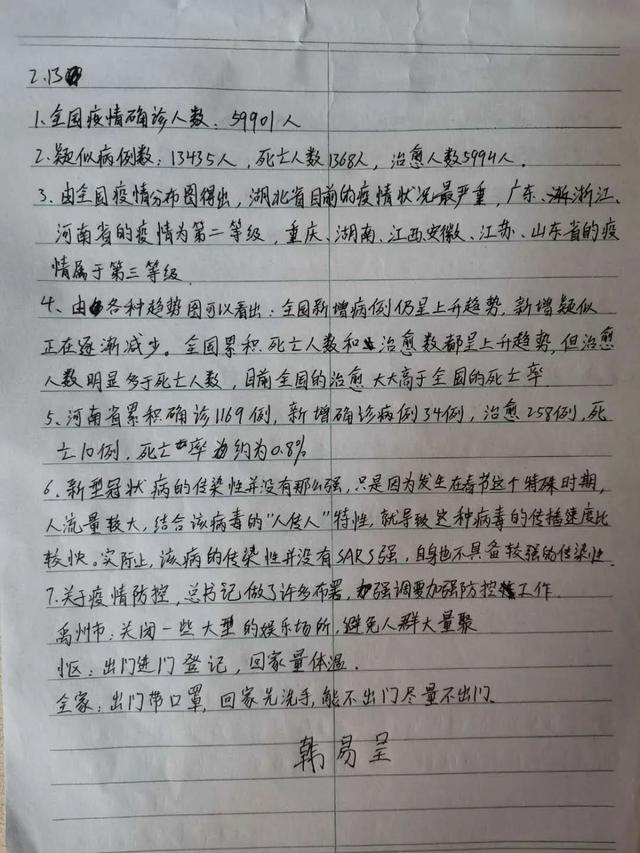 2.13
1、全国疫情确诊人数：59901人
2、疑似病例数：13435人，死亡人数1368人，治愈人数5994人。
3、由全国疫情分布图得出，湖北省目前的疫情状况最严重，广东、浙江、
河南省的疫情为第二等级，重庆、湖南、江西、安徽、江苏、山东省的疫
情属于第三等级.
4、由各种趋势图可以看出：全国新增病例仍呈上升趋势，新增疑似
正在逐渐减少。全国累积死亡人数和治愈数都呈上升趋势，但治愈
人数明显多于死亡人数，目前全国的治愈大大高于全国的死亡率.
5、河南省累积确诊1169例，新增确诊病例34例，治愈258例，死
亡10例，死亡率约为0.8%
6、新型冠状病的传染性并没有那么强，只是因为发生在春节这个特殊时期，
人流量较大，结合该病毒的“人传人”特性，就导致这种病毒的传播速度比
较快。实际上，该病的传染性并没有SARS强，自身也不具备较强的传染性.
7.关于疫情防控，总书记做了许多布署，强调要加强防控工作.
禹州市：关闭一些大型的娱乐场所，避免人群大量聚
小区：出门进门登记，回家量体温.
全家：出门带口罩，回家先洗手，能不出门尽量不出门.
韩易呈